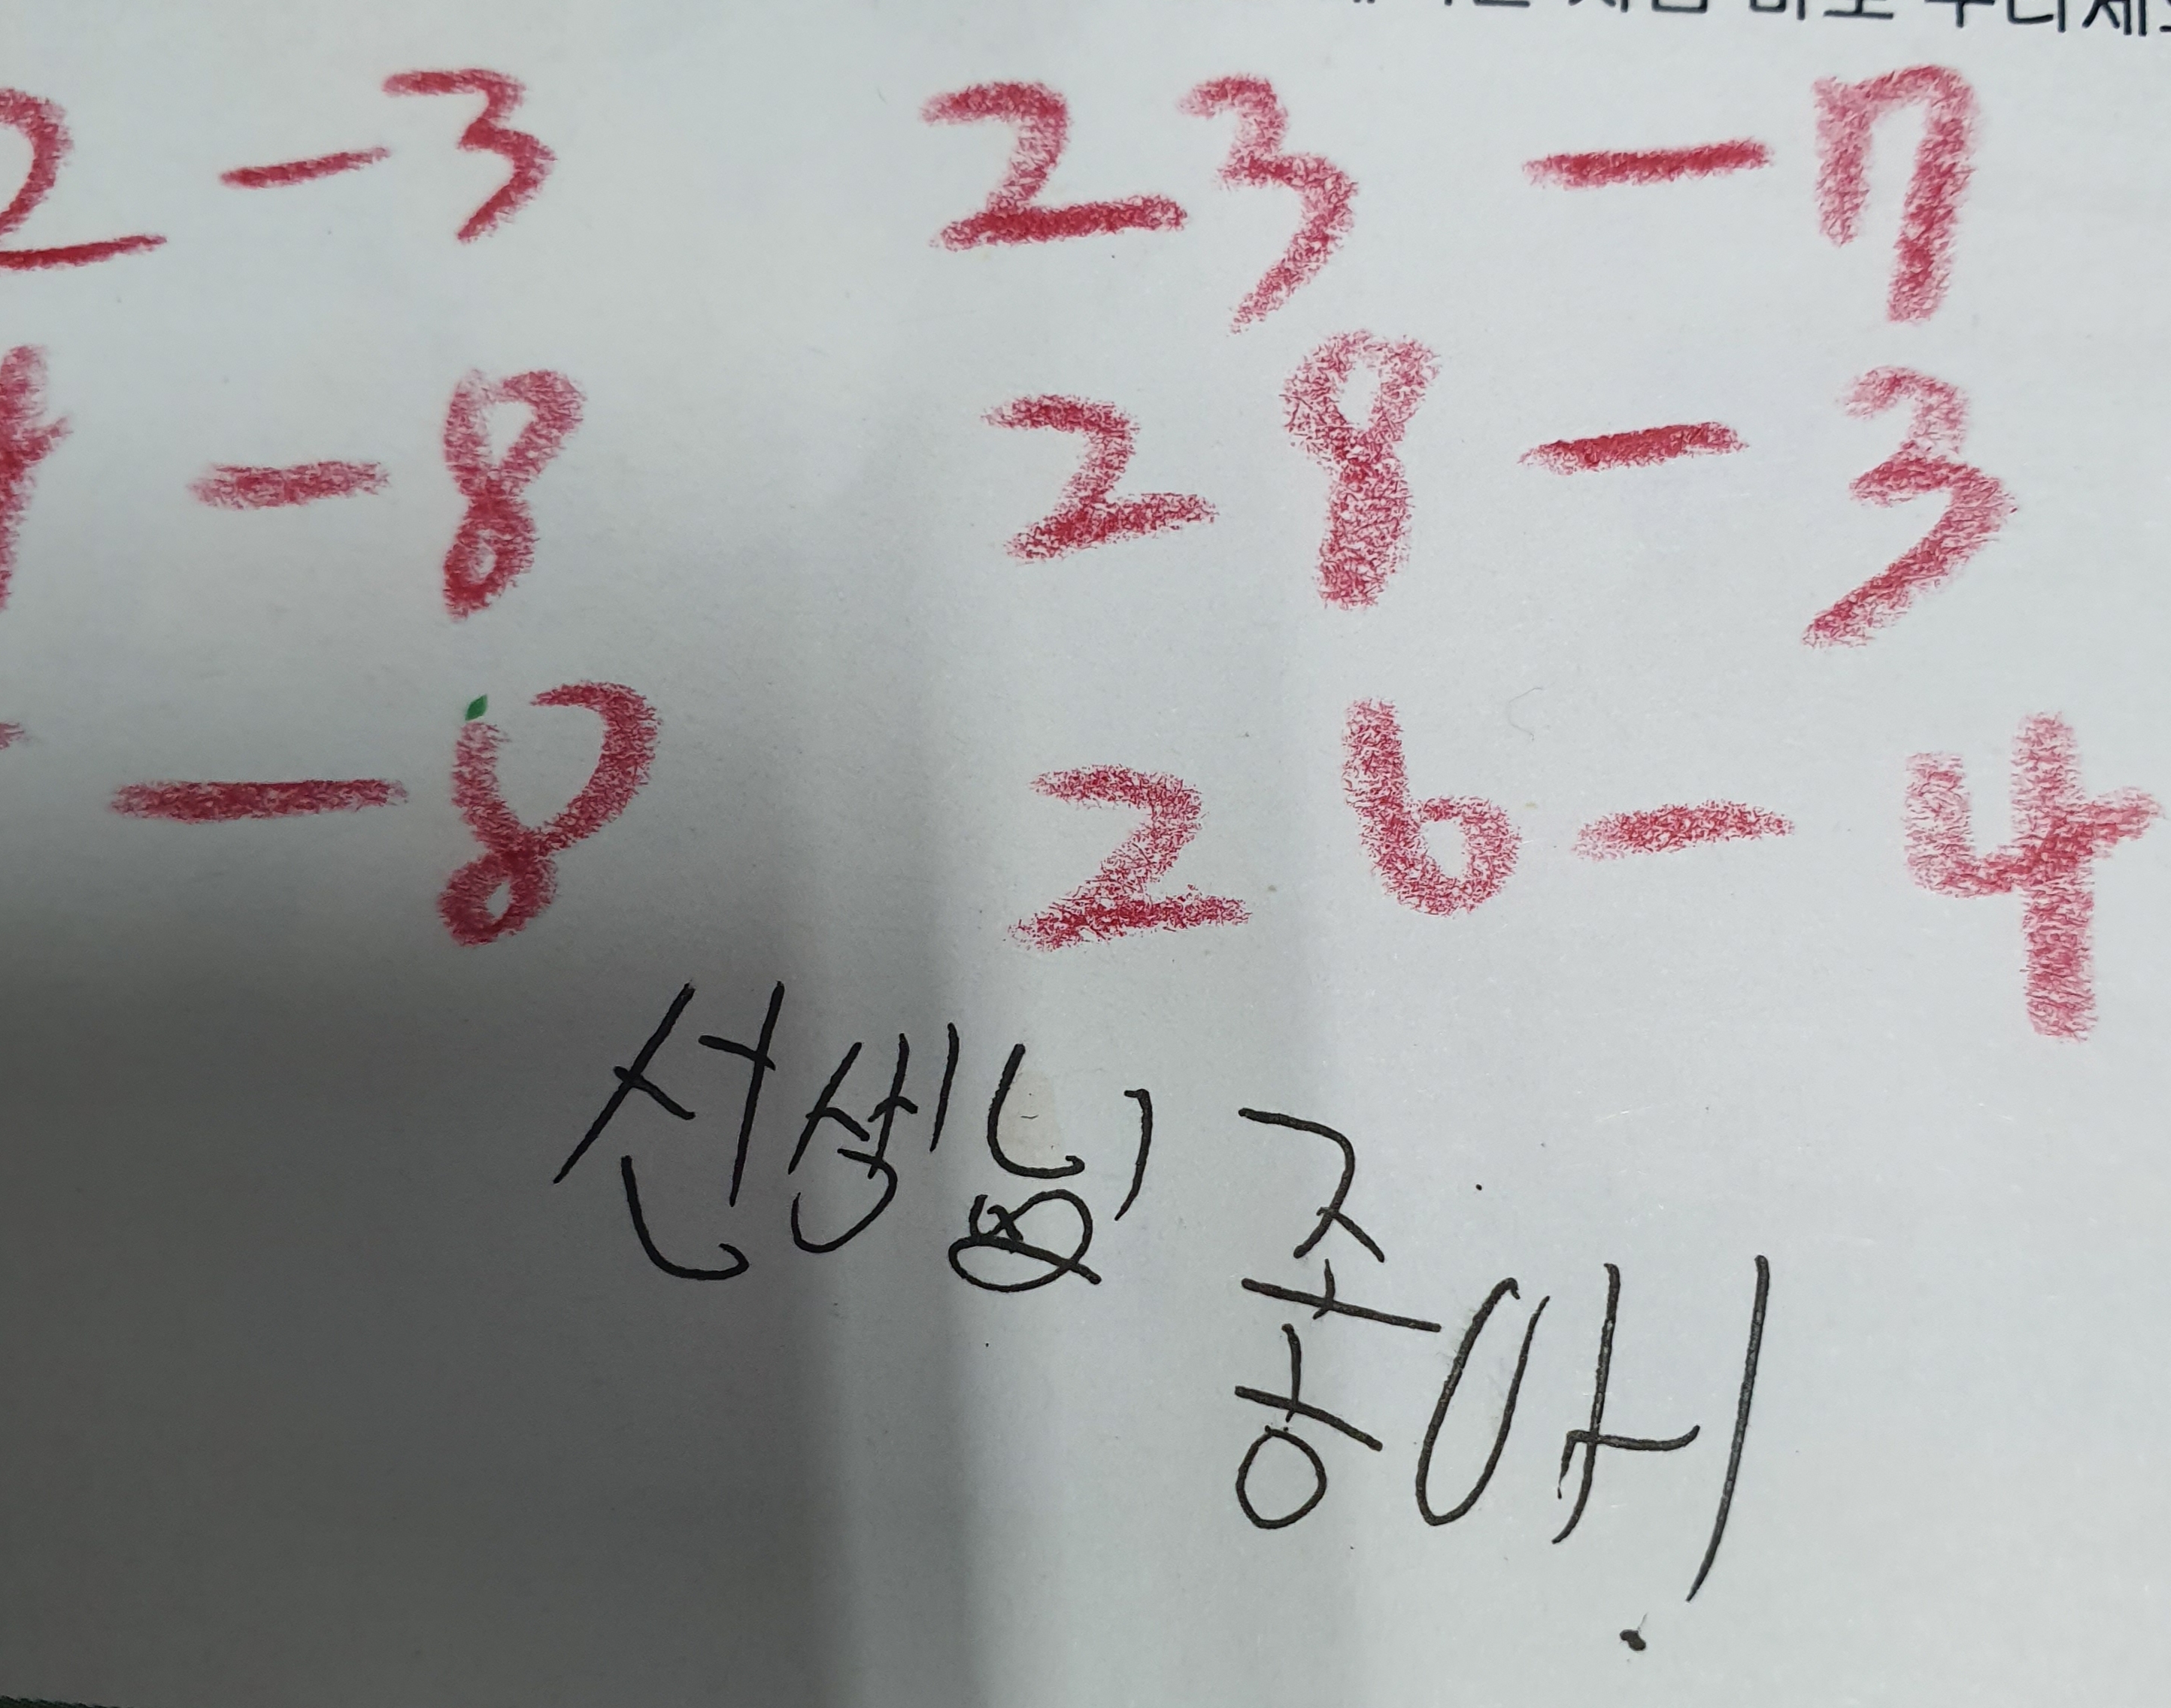 2 - 3 23 - 7
4 - 8 28 - 3
- 8 26 - 4
선생님 좋아!